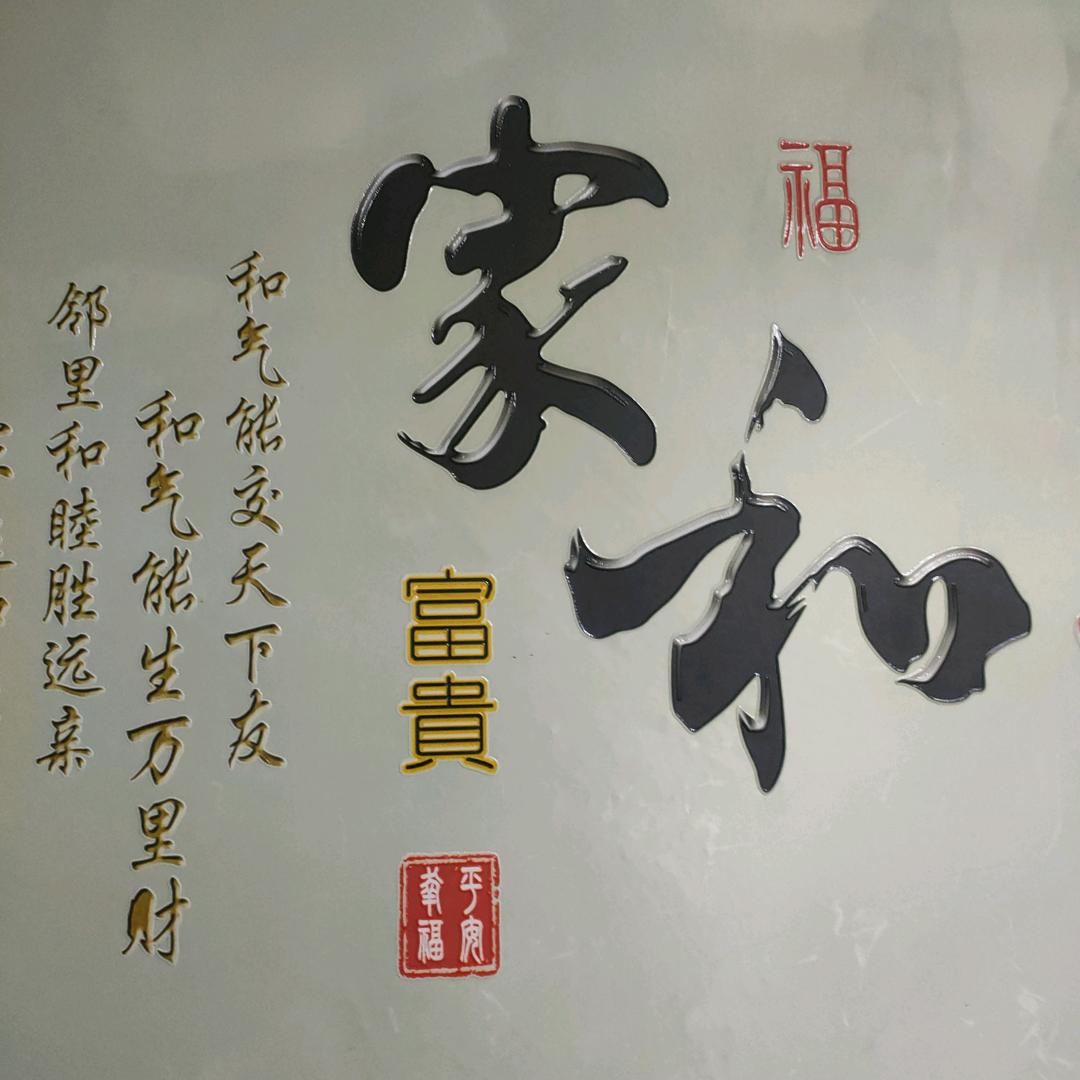 福
家和
富貴
平安
幸福
和气能交天下友
和气能生万里财
邻里和睦胜远亲